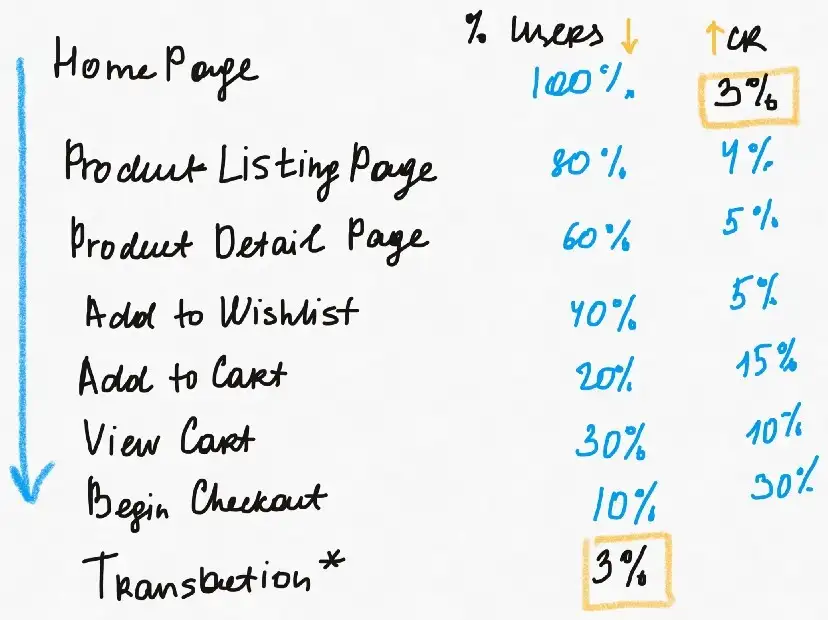 % Users ↓ ↑ CR
Home Page 100% 3%
Product Listing Page 80% 4%
Product Detail Page 60% 5%
Add to Wishlist 40% 5%
Add to Cart 20% 15%
View Cart 30% 10%
Begin Checkout 10% 30%
Transbution* 3%